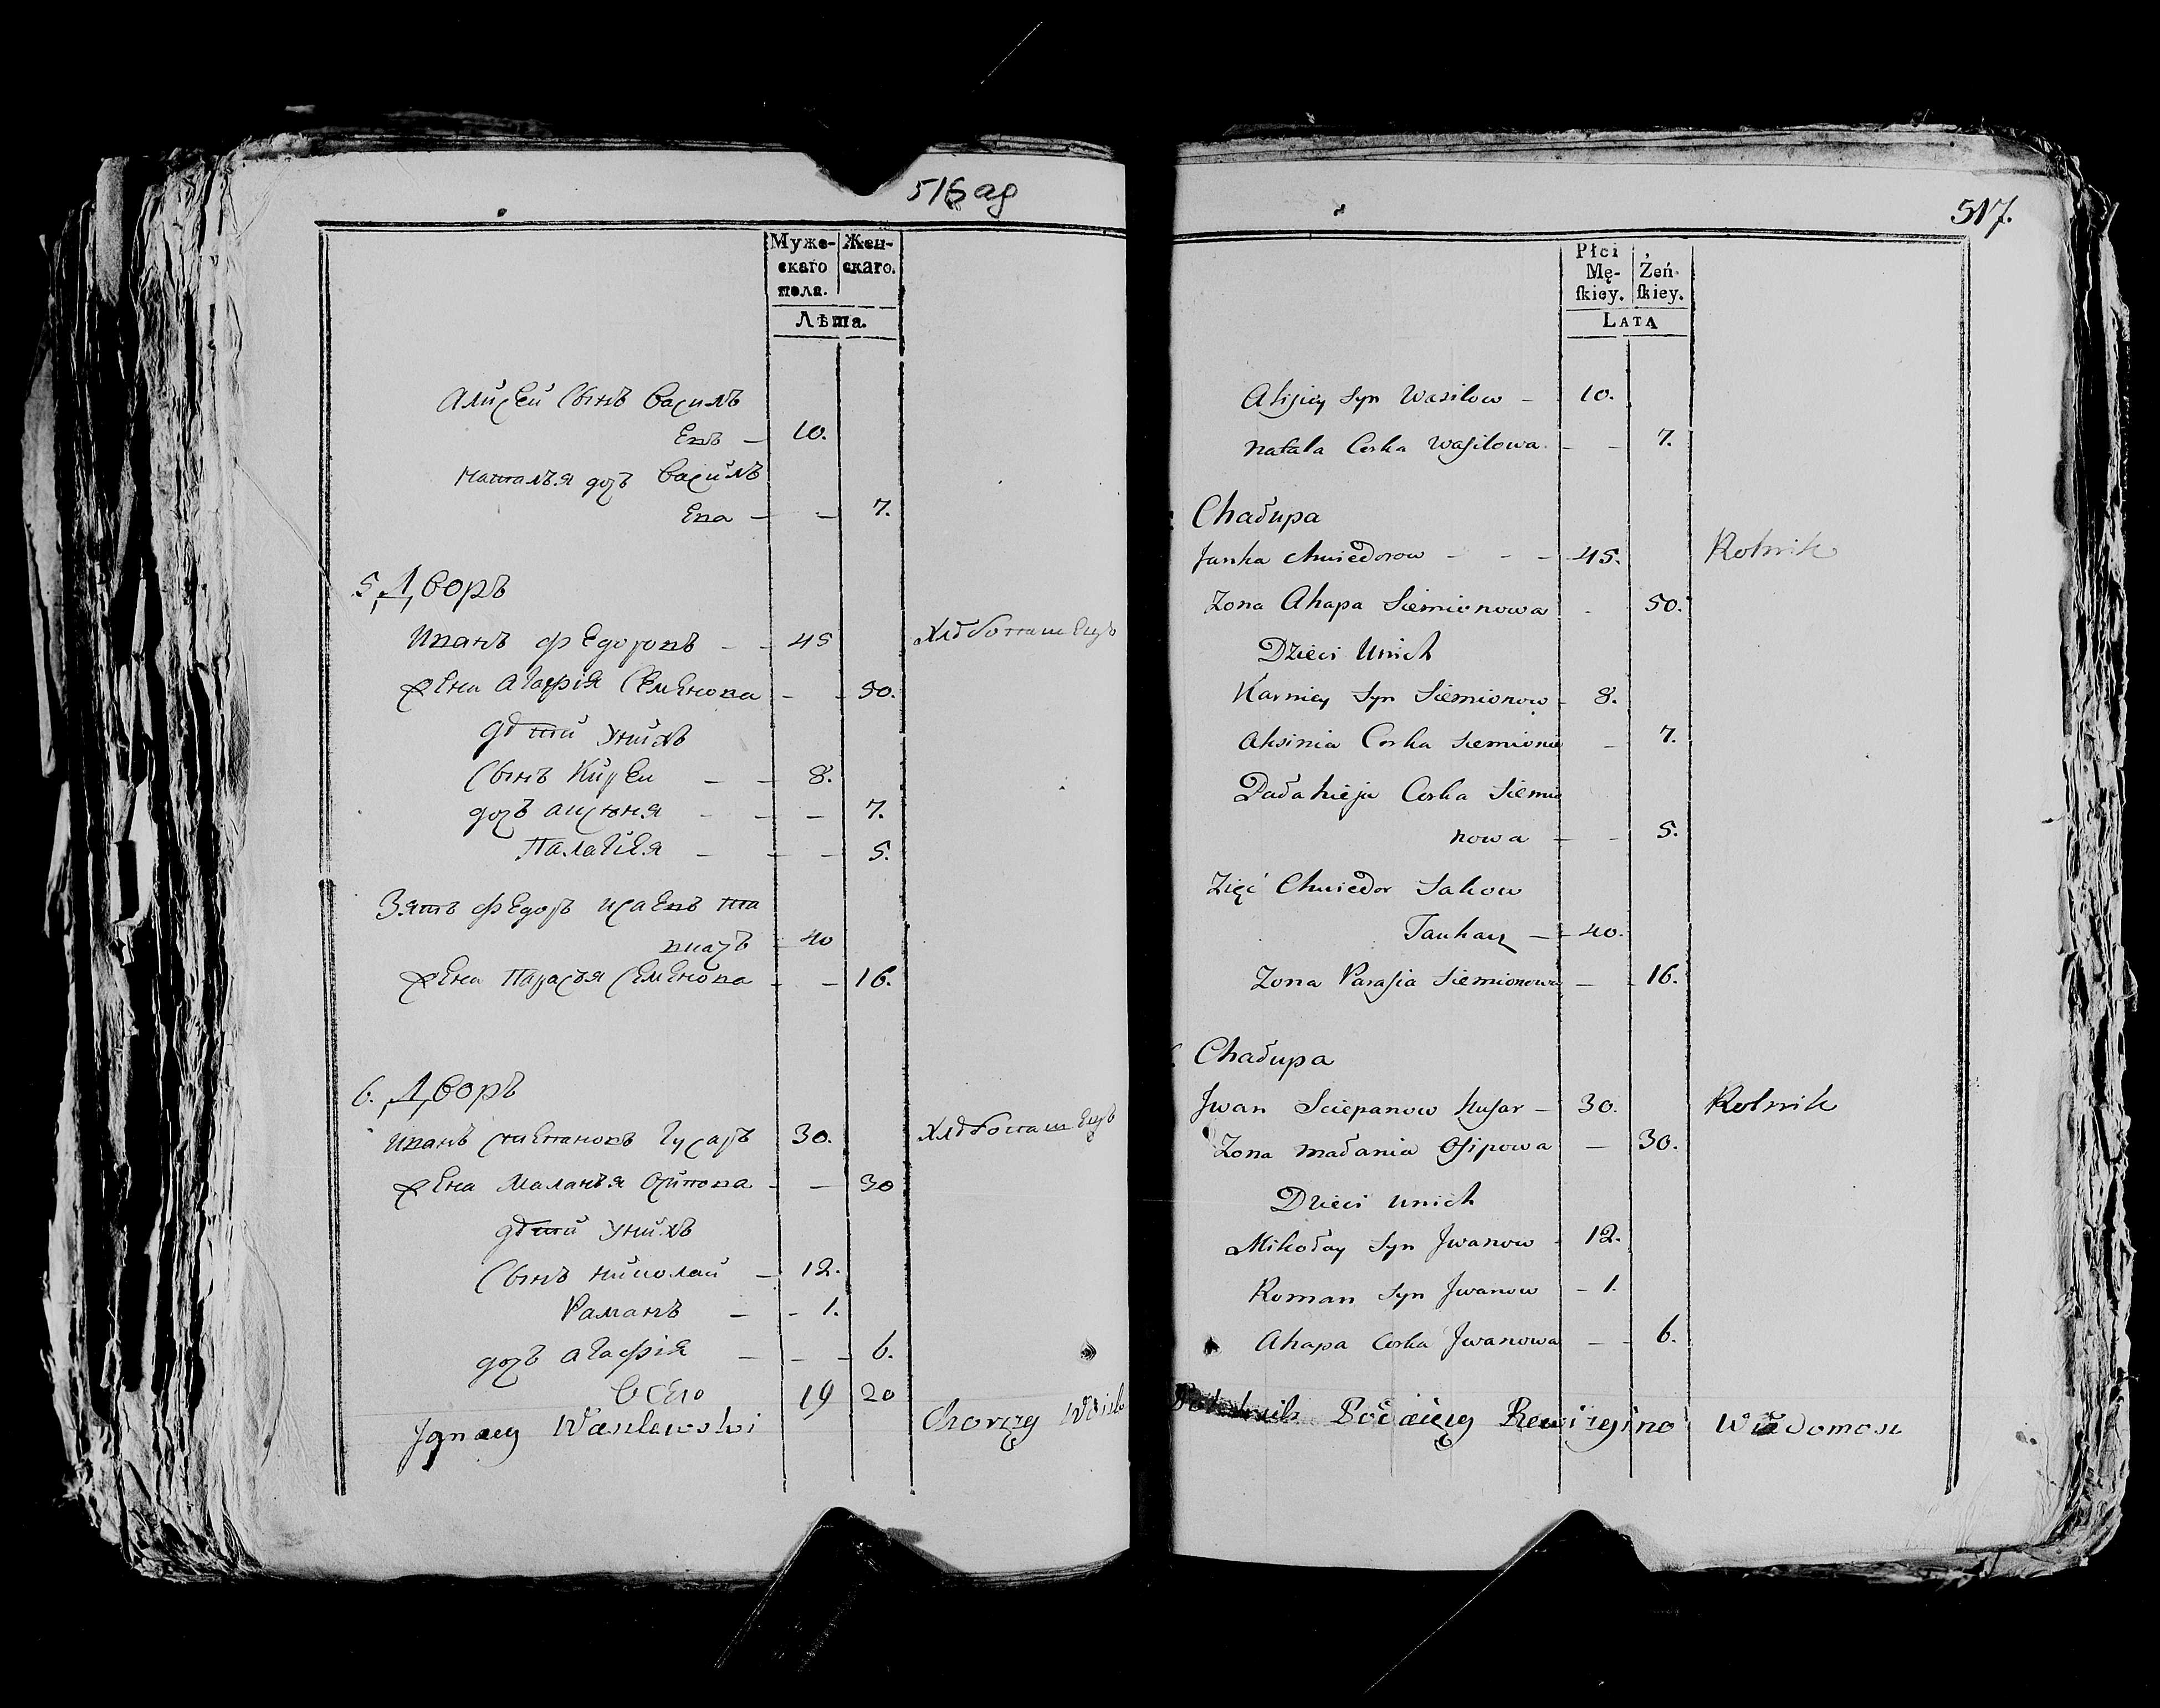 516 ад
Муже-
скаго
пола.
Жен-
скаго.
Лѣта.
Алисей Сынъ Василь
евъ — 10.
Наталья дочь Василь
ева — — 7.
5. Дворъ
Иванъ Федоровъ — — 45 Хлѣбопашецъ
Жена Агафія Семенова — — 50.
дѣти У нихъ
Сынъ Кирей — — 8.
дочь Аксиня — — — 7.
Палагея — — — 5.
Зять Федоръ Исаевъ Та
вкачъ — 40
Жена Парасья Семенова — — 16.
6. Дворъ
Иванъ Степановъ Гусаръ 30. Хлѣбопашецъ
Жена Маланья Осипова — — 30
дѣти У нихъ
Сынъ Николай — 12.
Раманъ — — 1.
дочь Агафія — — — 6.
Всего 19 20
Jgnacy Wasilewski Chorąży Wasil
517.
Płci
Mę-
ſkiey.
Żeń-
ſkiey.
LATA
Alisiey Syn Wasilow — 10.
Natala Corka Wasilowa. — — 7.
Chałupa
Janka Chwiedorow - - - 45. Rolnik
Zona Ahapa Siemionowa - 50.
Dzieci Unich
Karniey Syn Siemionow - 8.
Aksinia Corka Siemiono - 7.
Pałahieja Corka Siemio
nowa — - 5.
Zięć Chwiedor Sakow
Taukacz — 40.
Zona Parasia Siemionowa — - 16.
Chałupa
Jwan Sciepanow Husar — 30. Rolnik
Zona Małania Osipowa — 30.
Dzieci unich
Mikołay Syn Jwanow - 12.
Roman Syn Jwanow - 1.
Ahapa Corka Jwanowa — - 6.
Podaiący Rewizyino Wiadomosc